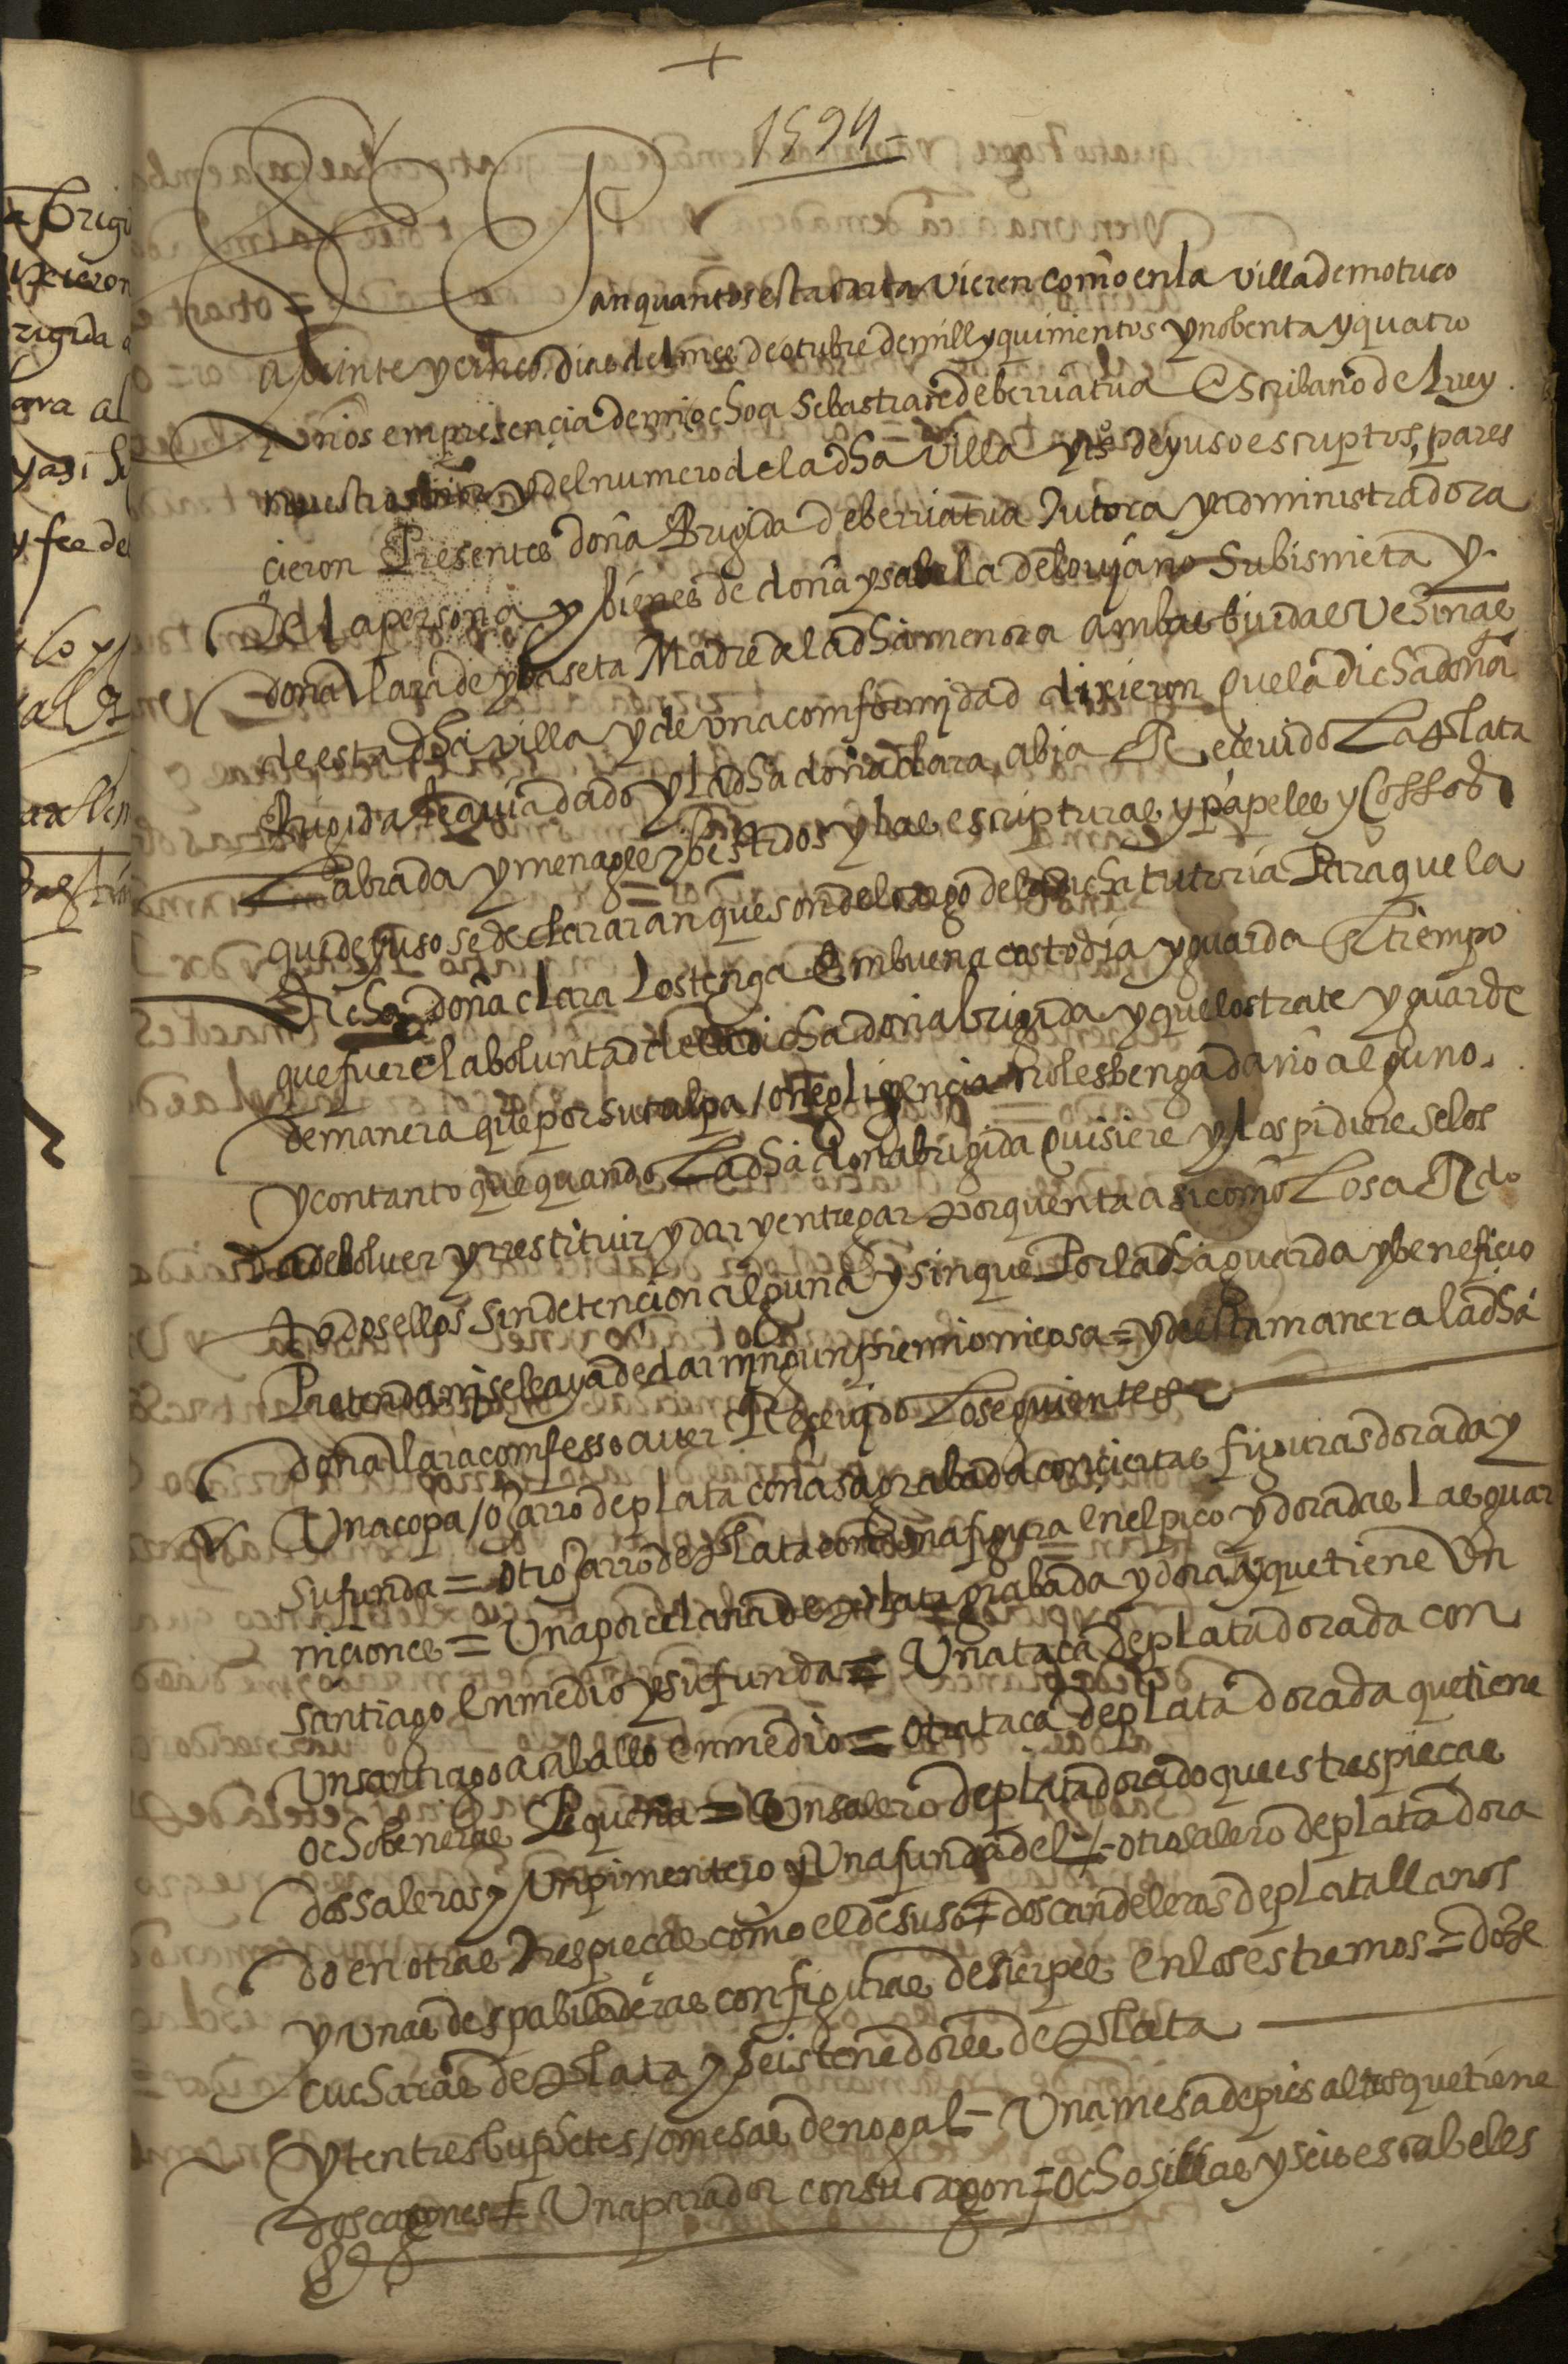 +
1594 =
Sepan quantos esta carta vieren como en la villa de motrico
a veinte y cinco dias del mes de otubre de mill y quinientos y nobenta y quatro
años em presençia de mi ochoa Sebastian de berriatua escribano del rey
nuestro señor y del numero de la dha villa y ts deyuso escriptos, pares
cieron Presentes doña Brigida de berriatua tutora y administradora
de la persona y bienes de doña ysabela de loyano Subisnieta y
doña clara de ybaseta Madre de la dha menora ambas biudas vesinas
de esta dha villa y de una comformidad dixieron que la dicha doña
Brigida le avia dado y la dha doña clara abia Recevido La plata
Labrada y menages y bestidos y las escripturas y papeles y cossas
qui deyuso se declararan que son del cargo de la dicha tutoria Para que la
dicha doña clara los tenga em buena custodia y guarda el tiempo
que fuere la boluntad de la dicha doña brigida y que los trate y guarde
de manera que por su culpa / o negligencia no les benga daño alguno.
y con tanto que quando La dha doña brigida quisiere y los pidiere se los
a de bolver y rrestituir y dar y entregar por quenta asi como Los a Rdo
todos ellos sin detencion alguna y sin que Por la dha guarda y beneficio
Pretenda ni se le aya de dar ningun premio ni cosa = y de esta manera la dha
doña clara comfesso aver Recevido Los seguientes
Una copa / o Jarro de plata con asa grabada con çiertas figuras dorada y
su funda = otro Jarro de plata con una figura en el pico y doradas las guar
niciones = Una porcelana de plata grabada y dorada que tiene Un
santiago en medio y su funda = Una taça de plata dorada con
Un santiago a caballo en medio = otra taça de plata dorada que tiene
ocho beneras Pequeña = Un salero de plata dorado que es tres pieças
dos saleros y Un pimentero y Una funda del = otro salero de plata dora
do en otras tres pieças como el de suso = dos candeleros de plata llanos
y unas despabiladeras con figuras de sierpes en los estremos = doze
cucharas de plata y seis tenedores de plata
yten tres bufetes / o mesas de nogal = Una mesa de pies altos que tiene
dos caxones = Un aparador con su caxon = ocho sillas y seis escabeles